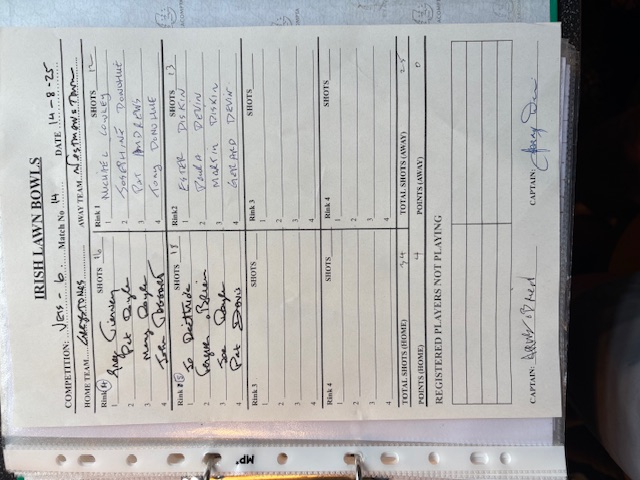 IRISH LAWN BOWLS
COMPETITION: Jess - 6 Match No 14 DATE 14-8-25
HOME TEAM GREYSTONES AWAY TEAM WESTMANSTOWN
Rink 4 SHOTS 16 Rink 1 SHOTS 12
1 Tierney 1 MICHAEL COWLEY
2 Pat Doyle 2 JOSEPHINE DONOHUE
3 Mary Doyle 3 PAT ANDREWS
4 John 4 TONY DONOHUE
Rink 2 5 SHOTS 18 Rink2 SHOTS 13
1 Jo 1 ESTER DISKIN
2 O'Brien 2 PAULA DEVIN
3 Joe Doyle 3 MARTIN DISKIN
4 Pat Davis 4 GERARD DEVIN
Rink 3 SHOTS Rink 3 SHOTS
1 1
2 2
3 3
4 4
Rink 4 SHOTS Rink 4 SHOTS
1 1
2 2
3 3
4 4
TOTAL SHOTS (HOME) 34 TOTAL SHOTS (AWAY) 25
POINTS (HOME) 4 POINTS (AWAY) 0
REGISTERED PLAYERS NOT PLAYING
CAPTAIN: CAPTAIN:
MP